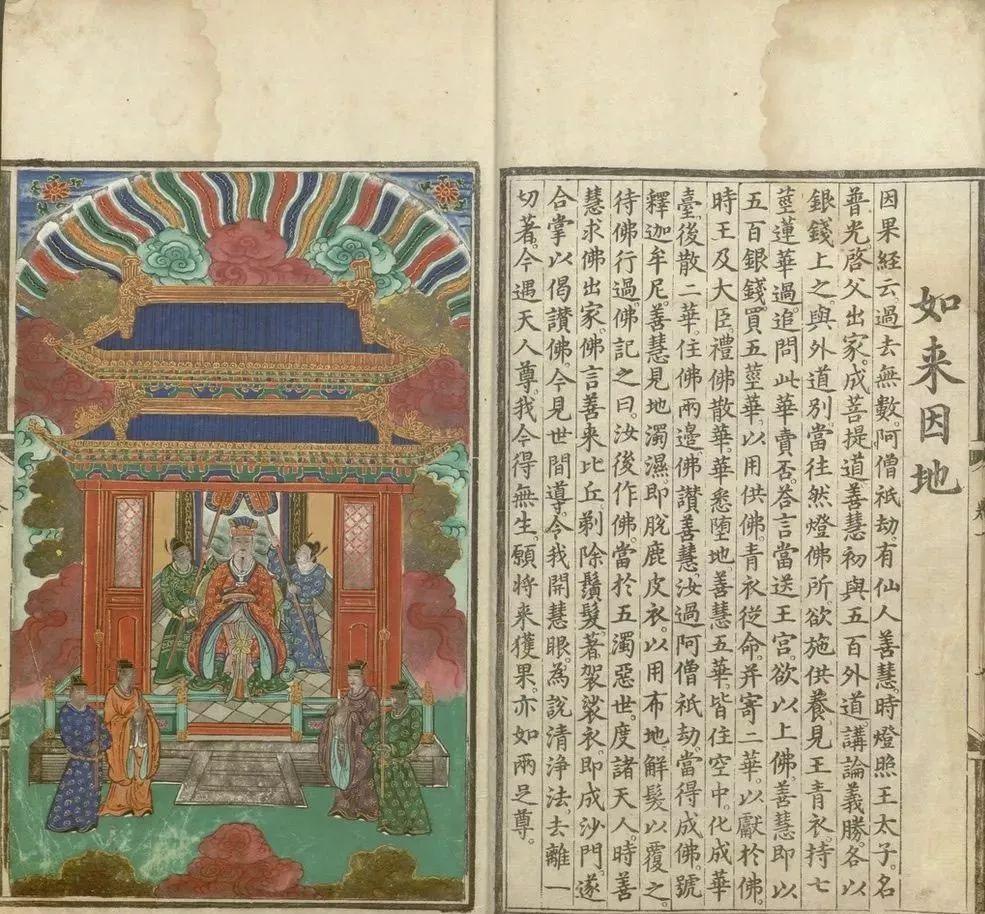 如来因地
因果經云。過去無數。阿僧祇劫。有仙人善慧。時燈照王太子。名
普光啓父出家。成菩提道。善慧初與五百外道。講論義勝。各以
銀錢上之。與外道別。當往然燈佛所欲施供養。見王青衣。持七
莖蓮華過。追問此華賣否。荅言當送王宮。欲以上佛。善慧即以
五百銀錢。買五莖華。以用供佛。青衣從命。并寄二華。以獻於佛。
時王及大臣。禮佛散華。華悉堕地善慧五華皆住空中。化成華
臺。後散二華。住佛兩邊佛讚善慧汝過阿僧祇劫。當得成佛。號
釋迦牟尼。善慧見地濁濕。即脱鹿皮衣。以用布地。解髮以覆之。
待佛行過。佛記之曰。汝後作佛。當於五濁惡世。度諸天人。時善
慧求佛出家。佛言善来比丘。剃除鬚髮著袈裟衣。即成沙門。遂
合掌以偈讚佛。今見世間導。令我開慧眼。為說清淨法。去離一
切著。今遇天人尊。我今得無生。願將来獲果。亦如兩足尊。